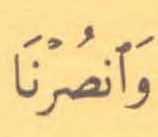 وَٱنصُرْنَا